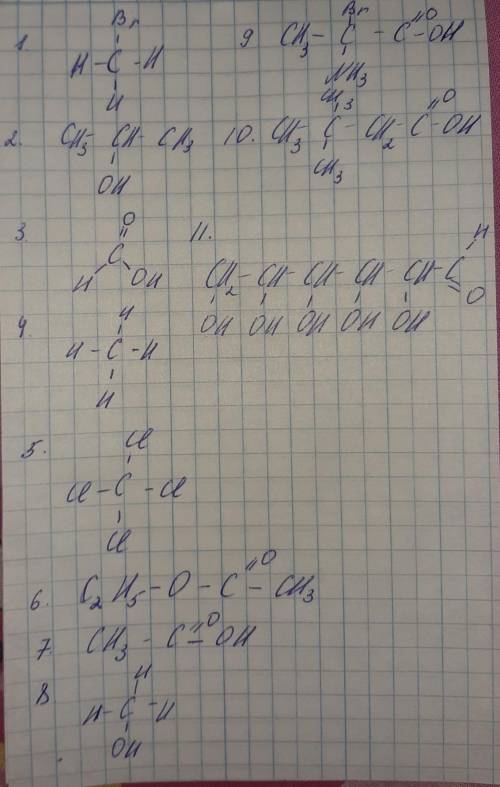 1.
Br
H - C - H
H
2. CH3 - CH - CH3
OH
3.
O
C
H OH
4.
H
H - C - H
H
5.
Cl
Cl - C - Cl
Cl
6. C2H5 - O - C =O - CH3
7. CH3 - C =O - OH
8
H
H - C - H
OH
9
Br
CH3 - C - C =O - OH
NH3
10.
CH3
CH3 - C - CH2 - C =O - OH
CH3
11.
H
CH2 - CH - CH - CH - CH - C = O
OH OH OH OH OH